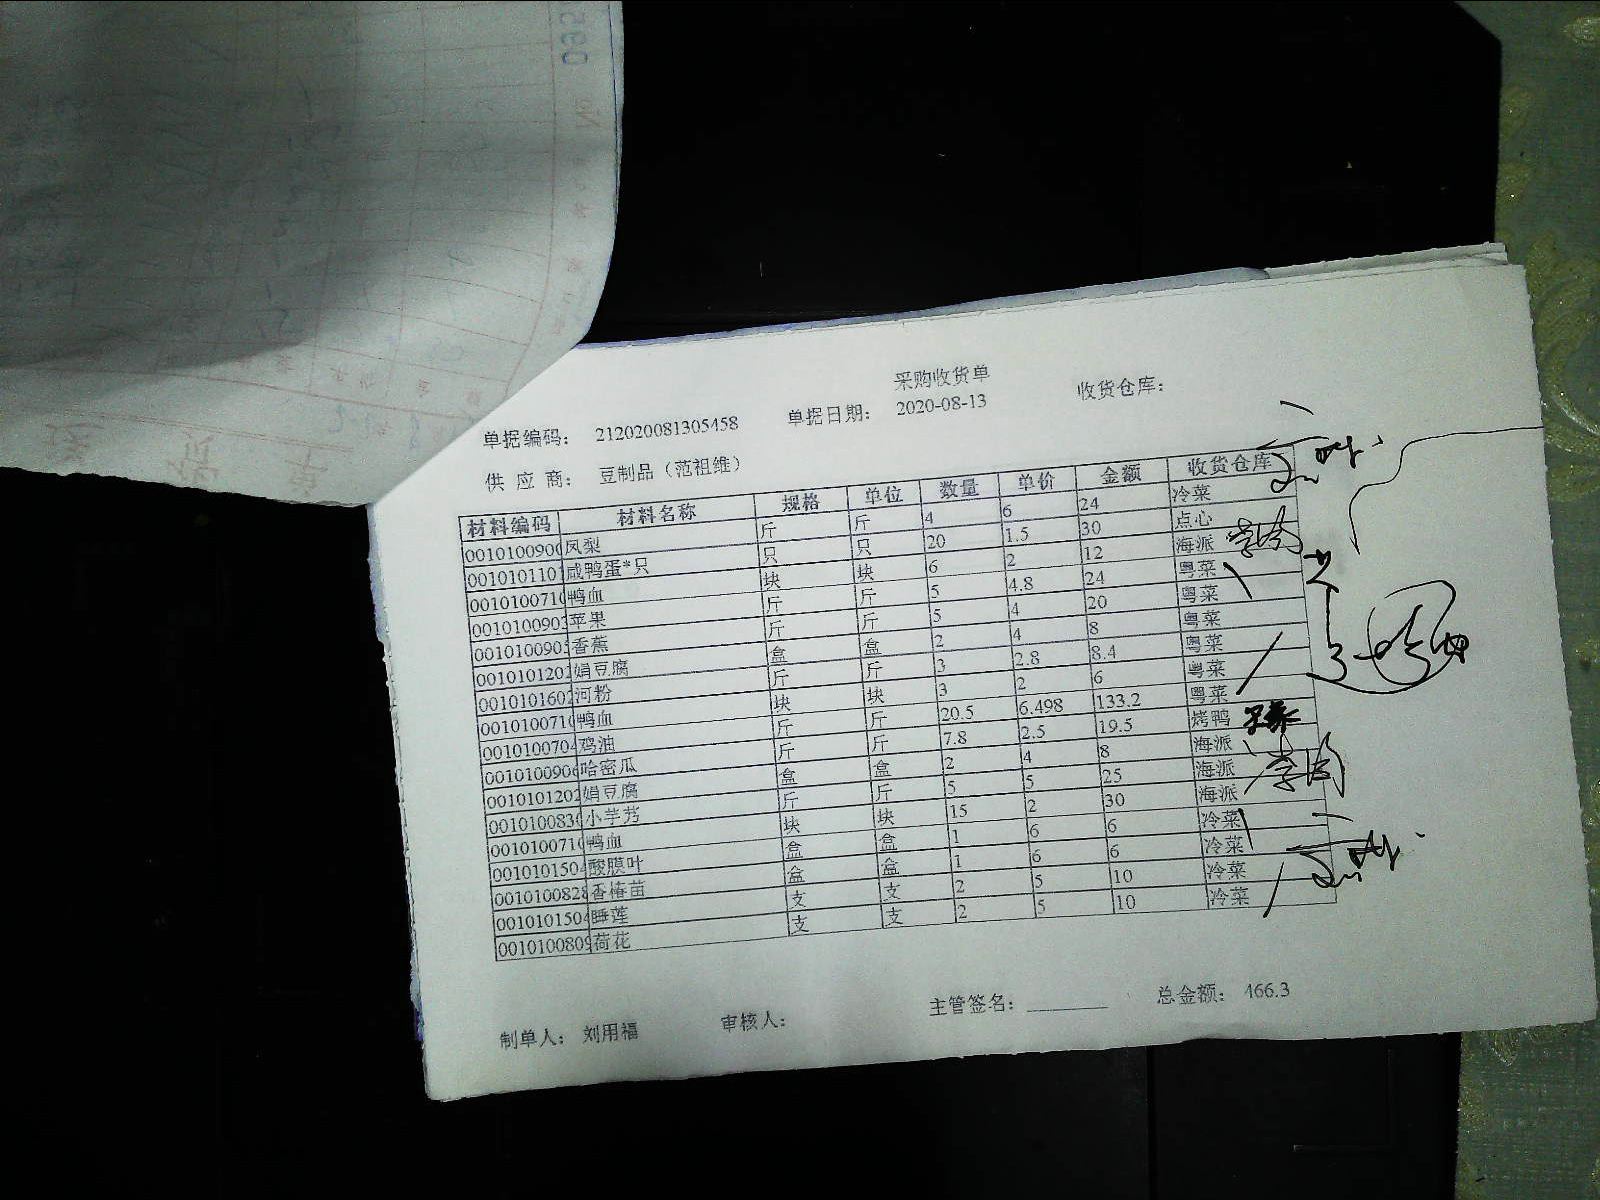 采购收货单
单据编码： 212020081305458 单据日期： 2020-08-13 收货仓库：
供 应 商： 豆制品（范祖维）
材料编码 材料名称 规格 单位 数量 单价 金额 收货仓库
001010090 凤梨 斤 斤 4 6 24 冷菜
001010110 咸鸭蛋*只 只 只 20 1.5 30 点心
001010071 鸭血 块 块 6 2 12 海派
001010090 苹果 斤 斤 5 4.8 24 粤菜
001010090 香蕉 斤 斤 5 4 20 粤菜
001010120 娟豆腐 盒 盒 2 4 8 粤菜
001010160 河粉 斤 斤 3 2.8 8.4 粤菜
001010071 鸭血 块 块 3 2 6 粤菜
001010070 鸡油 斤 斤 20.5 6.498 133.2 粤菜
001010090 哈密瓜 斤 斤 7.8 2.5 19.5 烤鸭
001010120 娟豆腐 盒 盒 2 4 8 海派
001010083 小芋艿 斤 斤 5 5 25 海派
001010071 鸭血 块 块 15 2 30 海派
001010150 酸膜叶 盒 盒 1 6 6 冷菜
001010082 香椿苗 盒 盒 1 6 6 冷菜
001010150 睡莲 支 支 2 5 10 冷菜
001010080 荷花 支 支 2 5 10 冷菜
制单人： 刘用福 审核人： 主管签名： 总金额： 466.3